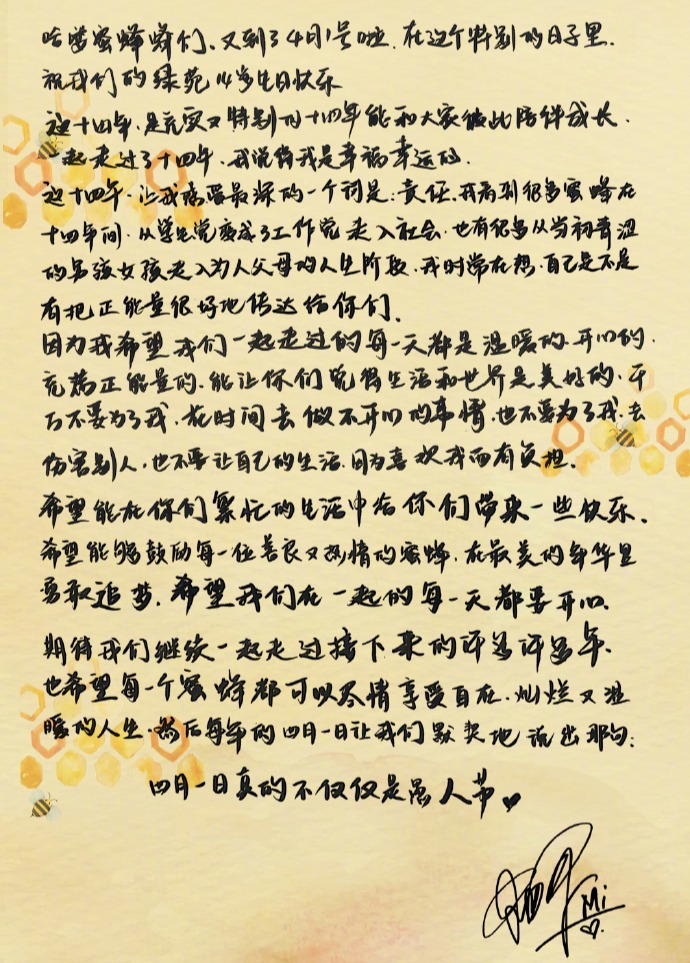 哈喽蜜蜂蜂们、又到了4月1号啦.在这个特别的日子里.
祝我们的绿苑14岁生日快乐
这十四年.是充实又特别的十四年能和大家彼此陪伴成长.
一起走过了十四年.我觉得我是幸福幸运的.
这十四年.让我感受最深的一个词是:责任.我看到很多蜜蜂在
十四年间.从学生党变成了工作党走入社会.也有很多从当初青涩
的男孩女孩走入为人父母的人生阶段.我时常在想.自己是不是
有把正能量很好地传达给你们.
因为我希望我们一起走过的每一天都是温暖的.开心的.
充满正能量的.能让你们觉得生活和世界是美好的.千
万不要为了我.花时间去做不开心的事情.也不要为了我.去
伤害别人.也不要让自己的生活.因为喜欢我而有负担.
希望能在你们繁忙的生活中给你们带来一些快乐.
希望能够鼓励每一位善良又热情的蜜蜂.在最美的年华里
勇敢追梦.希望我们在一起的每一天都要开心.
期待我们继续一起走过接下来的许多许多年.
也希望每一个蜜蜂都可以尽情享受自在.灿烂又温
暖的人生.然后每年的四月一日让我们默契地说出那句:
四月一日真的不仅仅是愚人节
Mi